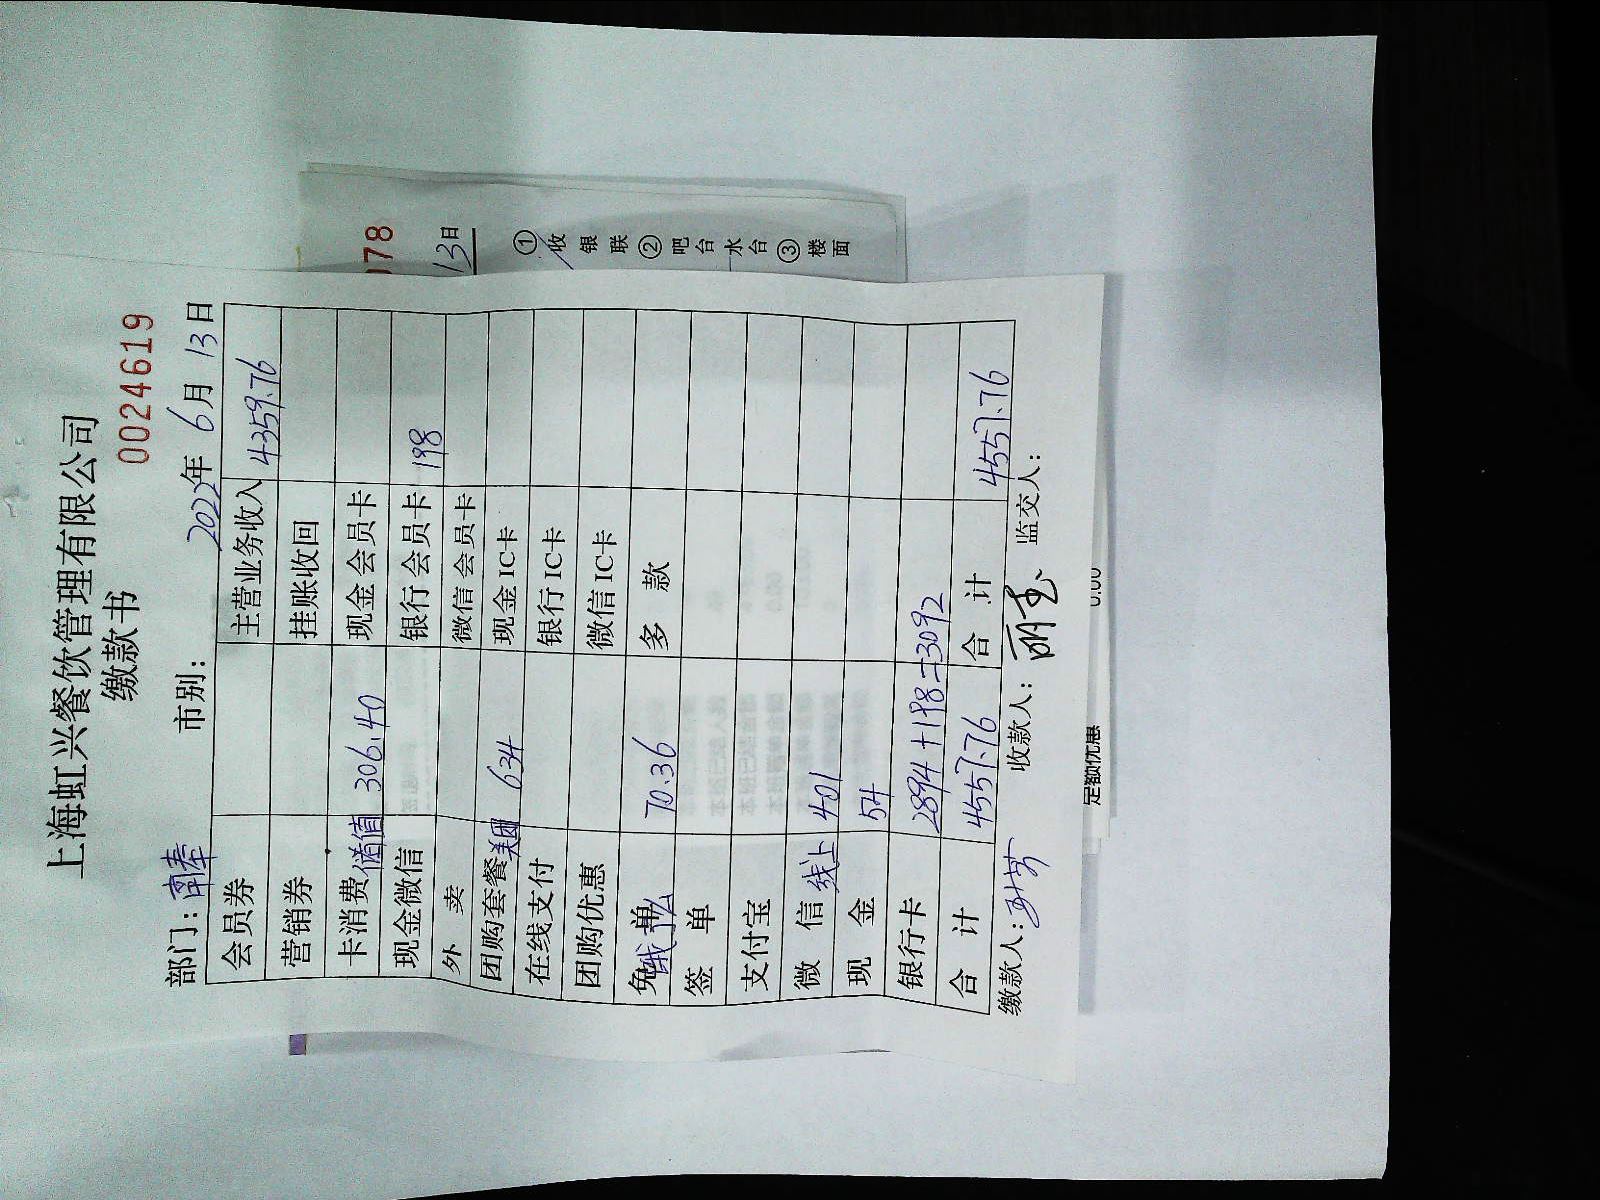 上海虹兴餐饮管理有限公司
缴款书
0024619
部门:南奉 市别: 2022年 6月 13日
会员券 主营业务收入 4359.76
营销券 挂账收回
卡消费 储值 306.40 现金会员卡
现金微信 银行会员卡 198
外 卖 微信会员卡
团购套餐 美团 634 现金IC卡
在线支付 银行IC卡
团购优惠 微信IC卡
免 单 70.36 多 款
签 单
支付宝
微 信 线上 401
现 金 54
银行卡 2894+198=3092
合 计 4557.76 合 计 4557.76
缴款人: 收款人: 监交人:
078
13日
①收银联②吧台水台③楼面
定额优惠 0.00